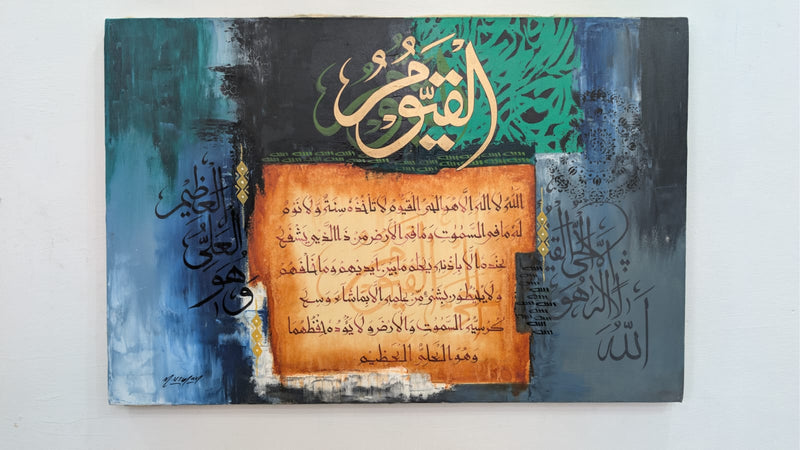 القيوم
الله لا اله الا هو الحي القيوم لا تأخذه سنة ولا نوم
له ما في السموت وما في الارض من ذا الذي يشفع
عنده الا باذنه يعلم ما بين ايديهم وما خلفهم
ولا يحيطون بشيء من علمه الا بما شاء وسع
كرسيه السموت والارض ولا يؤده حفظهما
وهو العلي العظيم
الله لا إله هو الحي القيو
وهو
العلي
العظيم